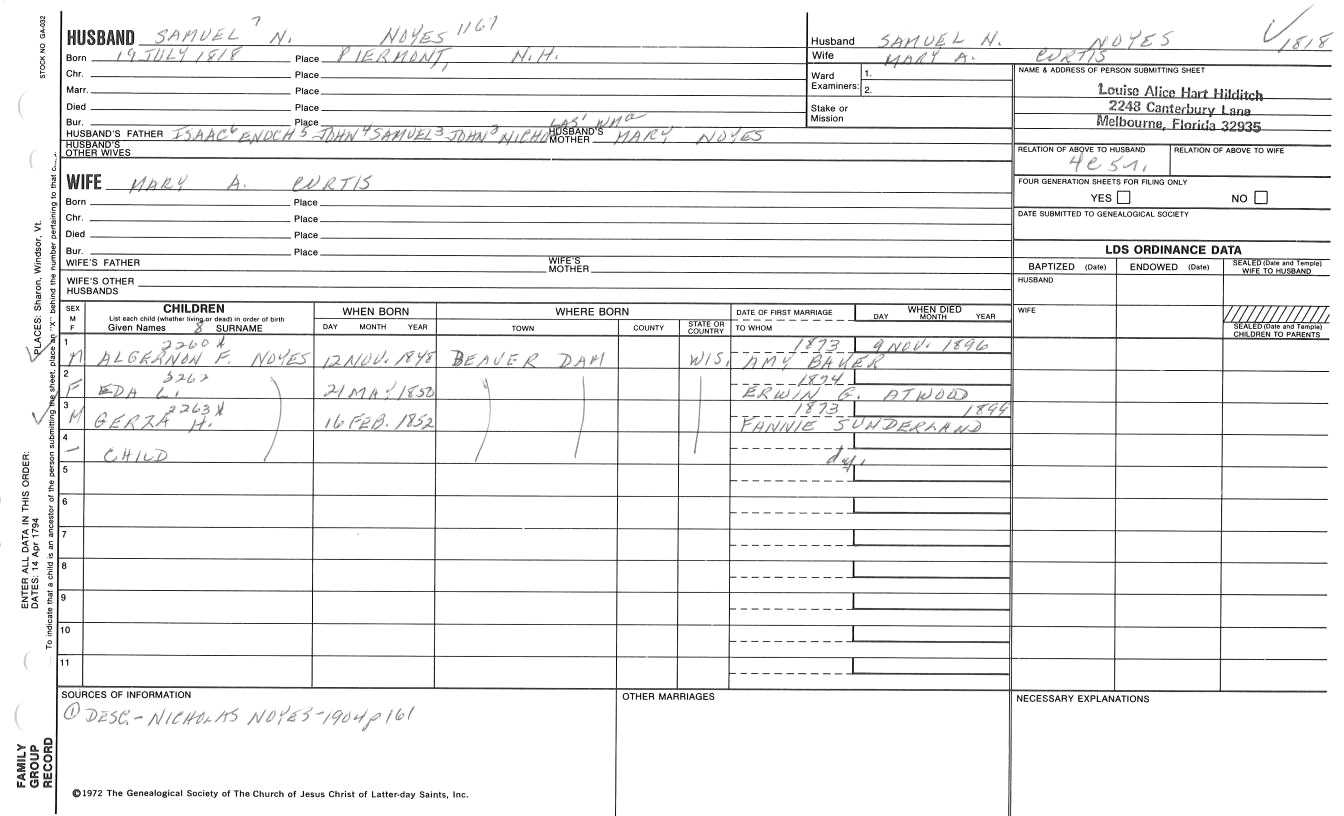 STOCK NO. GA-032
HUSBAND SAMUEL 7 N. NOYES 1167
Born 19 JULY 1818 Place PIERMONT, N.H.
Chr. Place
Marr. Place
Died Place
Bur. Place
HUSBAND'S FATHER ISAAC 6 ENOCH 5 JOHN 4 SAMUEL 3 JOHN NICHOLAS' WM HUSBAND'S MOTHER MARY NOYES
HUSBAND'S OTHER WIVES
WIFE MARY A. CURTIS
Born Place
Chr. Place
Died Place
Bur. Place
WIFE'S FATHER WIFE'S MOTHER
WIFE'S OTHER HUSBANDS
Husband SAMUEL N. NOYES 1818
Wife MARY A. CURTIS
Ward Examiners: 1.
2.
Stake or Mission
NAME & ADDRESS OF PERSON SUBMITTING SHEET
Louise Alice Hart Hilditch
2248 Canterbury Lane
Melbourne, Florida 32935
RELATION OF ABOVE TO HUSBAND RELATION OF ABOVE TO WIFE
FOUR GENERATION SHEETS FOR FILING ONLY
YES NO
DATE SUBMITTED TO GENEALOGICAL SOCIETY
LDS ORDINANCE DATA
BAPTIZED (Date) ENDOWED (Date) SEALED (Date and Temple) WIFE TO HUSBAND
HUSBAND
WIFE
SEALED (Date and Temple) CHILDREN TO PARENTS
SEX M F
CHILDREN
List each child (whether living or dead) in order of birth
Given Names 8 SURNAME
WHEN BORN
DAY MONTH YEAR
WHERE BORN
TOWN COUNTY STATE OR COUNTRY
DATE OF FIRST MARRIAGE
TO WHOM
WHEN DIED
DAY MONTH YEAR
1 2260 1873 9 NOV. 1896
M ALGERNON F. NOYES 12 NOV. 1848 BEAVER DAM WIS. AMY BAUER
2 1874
F EDA L. 21 MAY 1850 ERWIN G. ATWOOD
3 2263 1873 1899
M GERZA H. 16 FEB. 1852 FANNIE SUNDERLAND
4
— CHILD dy.
5
6
7
8
9
10
11
SOURCES OF INFORMATION
① DESC.- NICHOLAS NOYES-1904 p 161
OTHER MARRIAGES
NECESSARY EXPLANATIONS
©1972 The Genealogical Society of The Church of Jesus Christ of Latter-day Saints, Inc.
FAMILY GROUP RECORD
ENTER ALL DATA IN THIS ORDER:
DATES: 14 Apr 1794
PLACES: Sharon, Windsor, Vt.
To indicate that a child is an ancestor of the person submitting the sheet, place an "X" behind the number pertaining to that